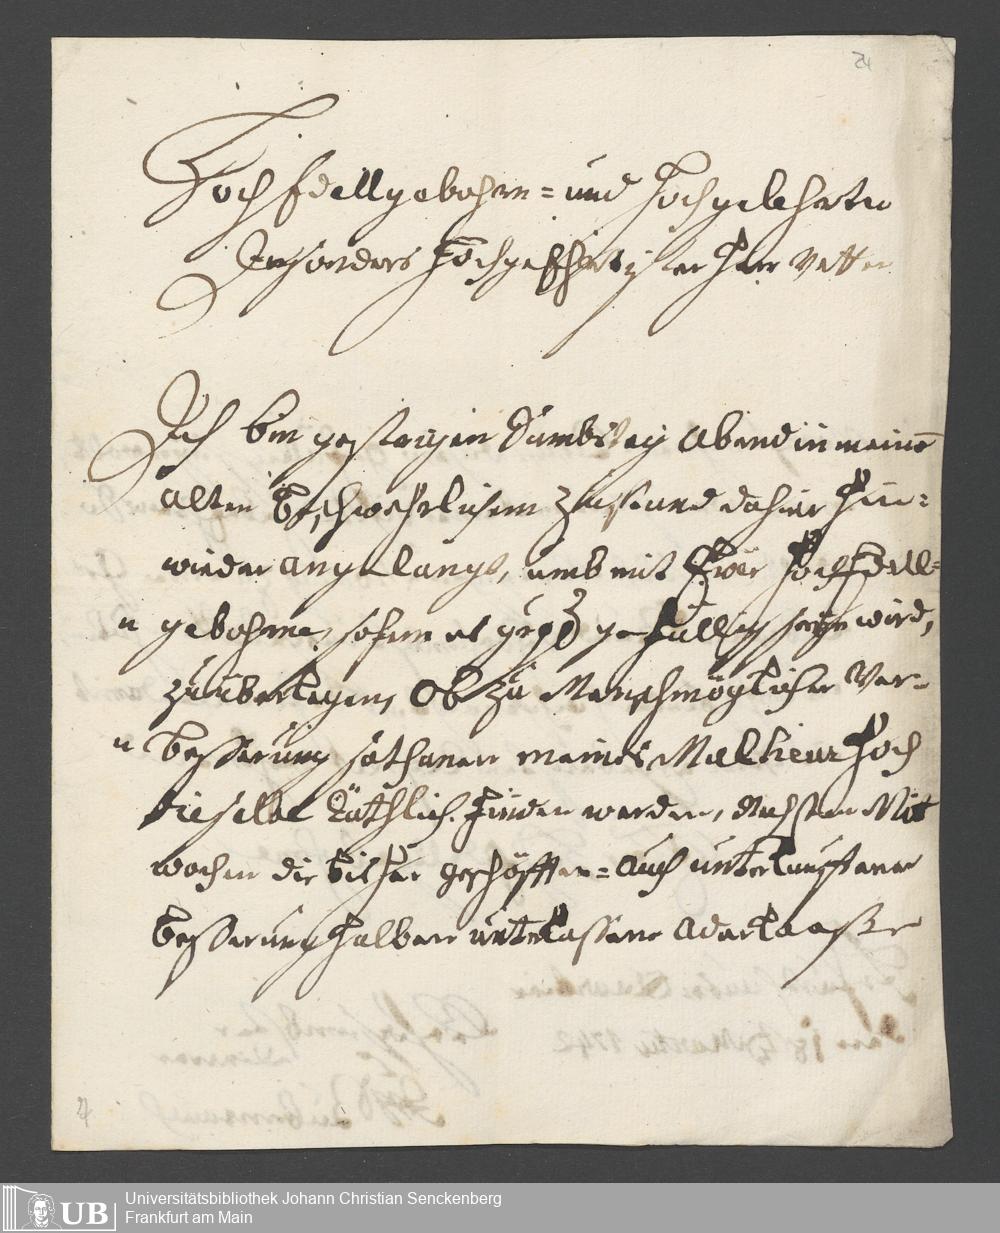 24
Hoch Edellgebohrn= und Hochgelehrter
Insonders Hochgeehrtister Herr Vetter
Ich bin gestrigen Sambstag Abend in meine
alten beschwehrlichem Zustand dahier hin=
wieder angelangt, umb mit Ewer HochEdell=
gebohrne, sofern es gefällig seyn wird,
zu uberlegen, Ob zu Menschmöglicher Ver=
besserung sothanen meines Malheur Hoch
dieselbe räthlich finden werden, nechsten Mit
wochen die bisher geschöpfften= auch unterlauffener
besserung halben unterlassene Aderlaasse
24
Universitätsbibliothek Johann Christian Senckenberg
Frankfurt am Main
UB